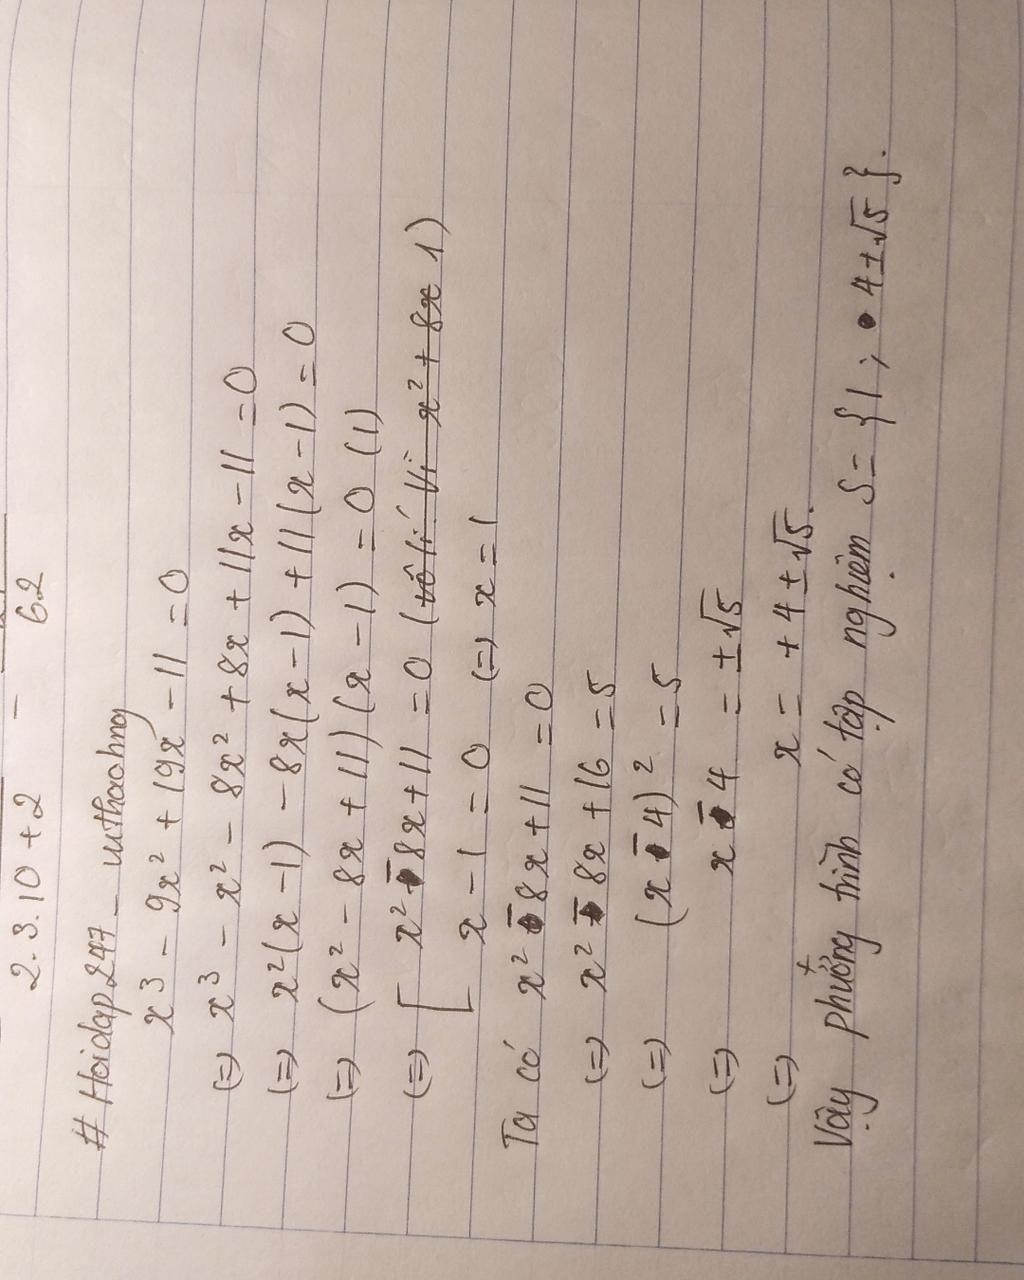 2.3.10 + 2 - 62
# Hoidap247_
x³ - 9x² + 19x - 11 = 0
(=) x³ - x² - 8x² + 8x + 11x - 11 = 0
(=) x²(x - 1) - 8x(x - 1) + 11(x - 1) = 0
(=) (x² - 8x + 11)(x - 1) = 0 (1)
(=) [ x² - 8x + 11 = 0 (vô lí vì x² + 8x 1)
x - 1 = 0 (=) x = 1
Ta có x² - 8x + 11 = 0
(=) x² - 8x + 16 = 5
(=) (x - 4)² = 5
(=) x - 4 = ±√5
(=) x = + 4 ± √5.
Vậy phương trình có tập nghiệm S = {1 ; 4 ± √5}.